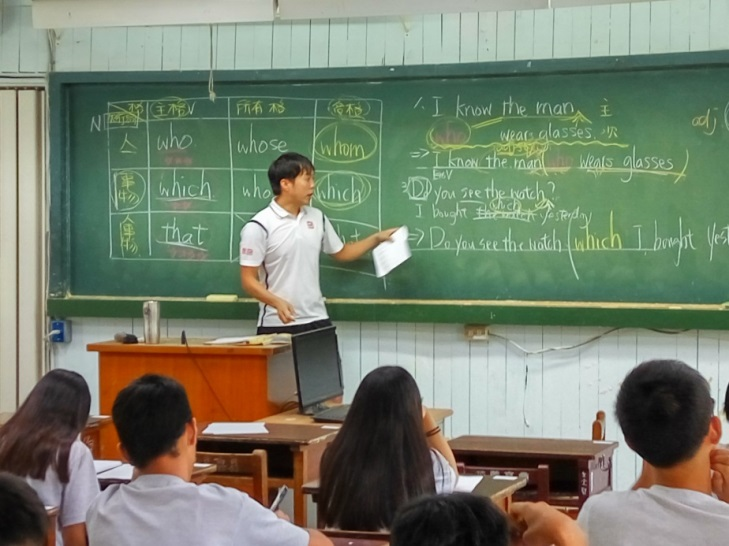 N 主格 所有格 受格
人 who whose whom
事物 which which
that
1. I know the man 主
who wears glasses.
=> I know the man who wears glasses
2. Do you see the watch?
which
I bought the watch yesterday
=> Do you see the watch (which I bought
adj